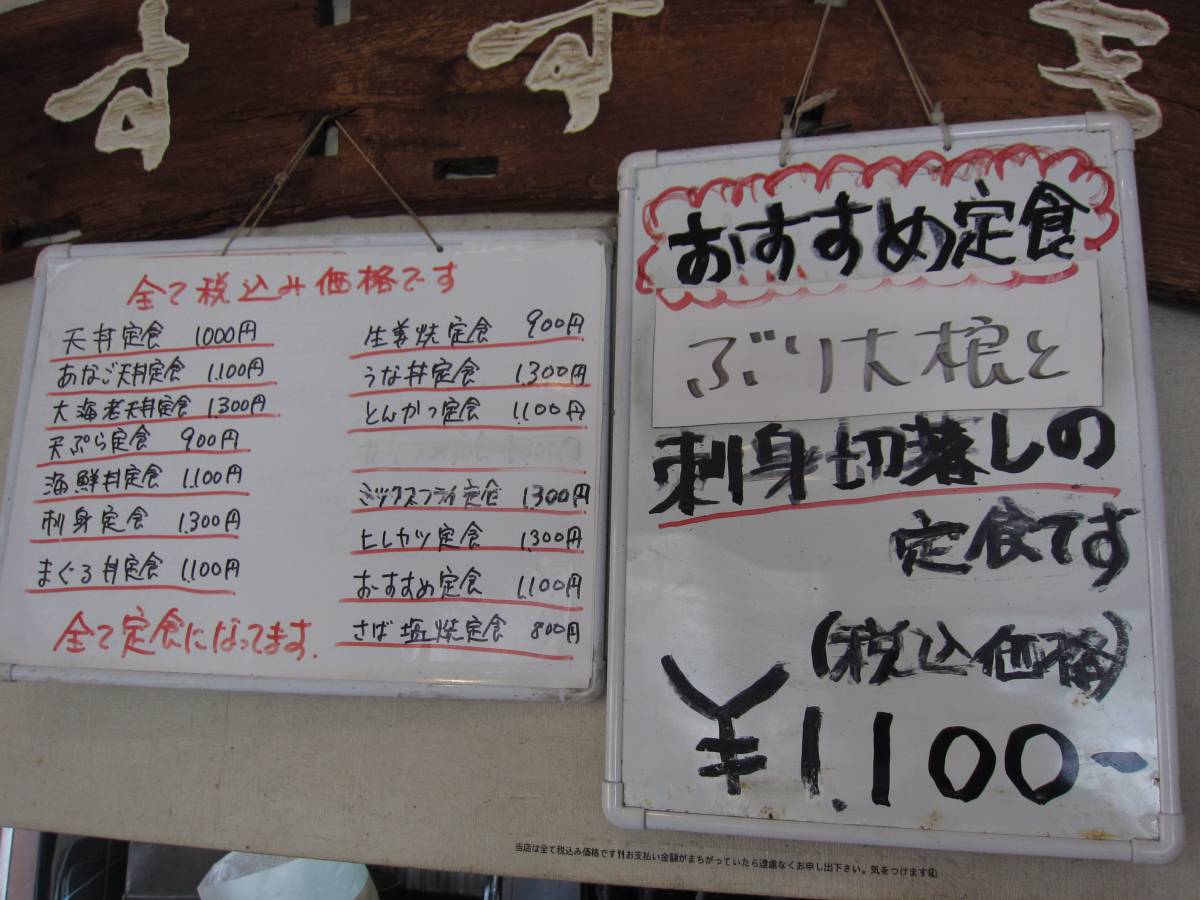 すすき
全て税込み価格です
天丼定食 1000円
あなご天丼定食 1,100円
大海老天丼定食 1,300円
天ぷら定食 900円
海鮮丼定食 1,100円
刺身定食 1,300円
まぐろ丼定食 1,100円
全て定食になってます.
生姜焼定食 900円
うな丼定食 1,300円
とんかつ定食 1,100円
ミックスフライ定食 1,300円
ヒレカツ定食 1,300円
おすすめ定食 1,100円
さば塩焼定食 800円
おすすめ定食
ぶり大根と
刺身切落しの
定食です
(税込価格)
¥1,100-
当店は全て税込み価格です!!お支払い金額がまちがっていたら遠慮なくお申し出下さい。気をつけます